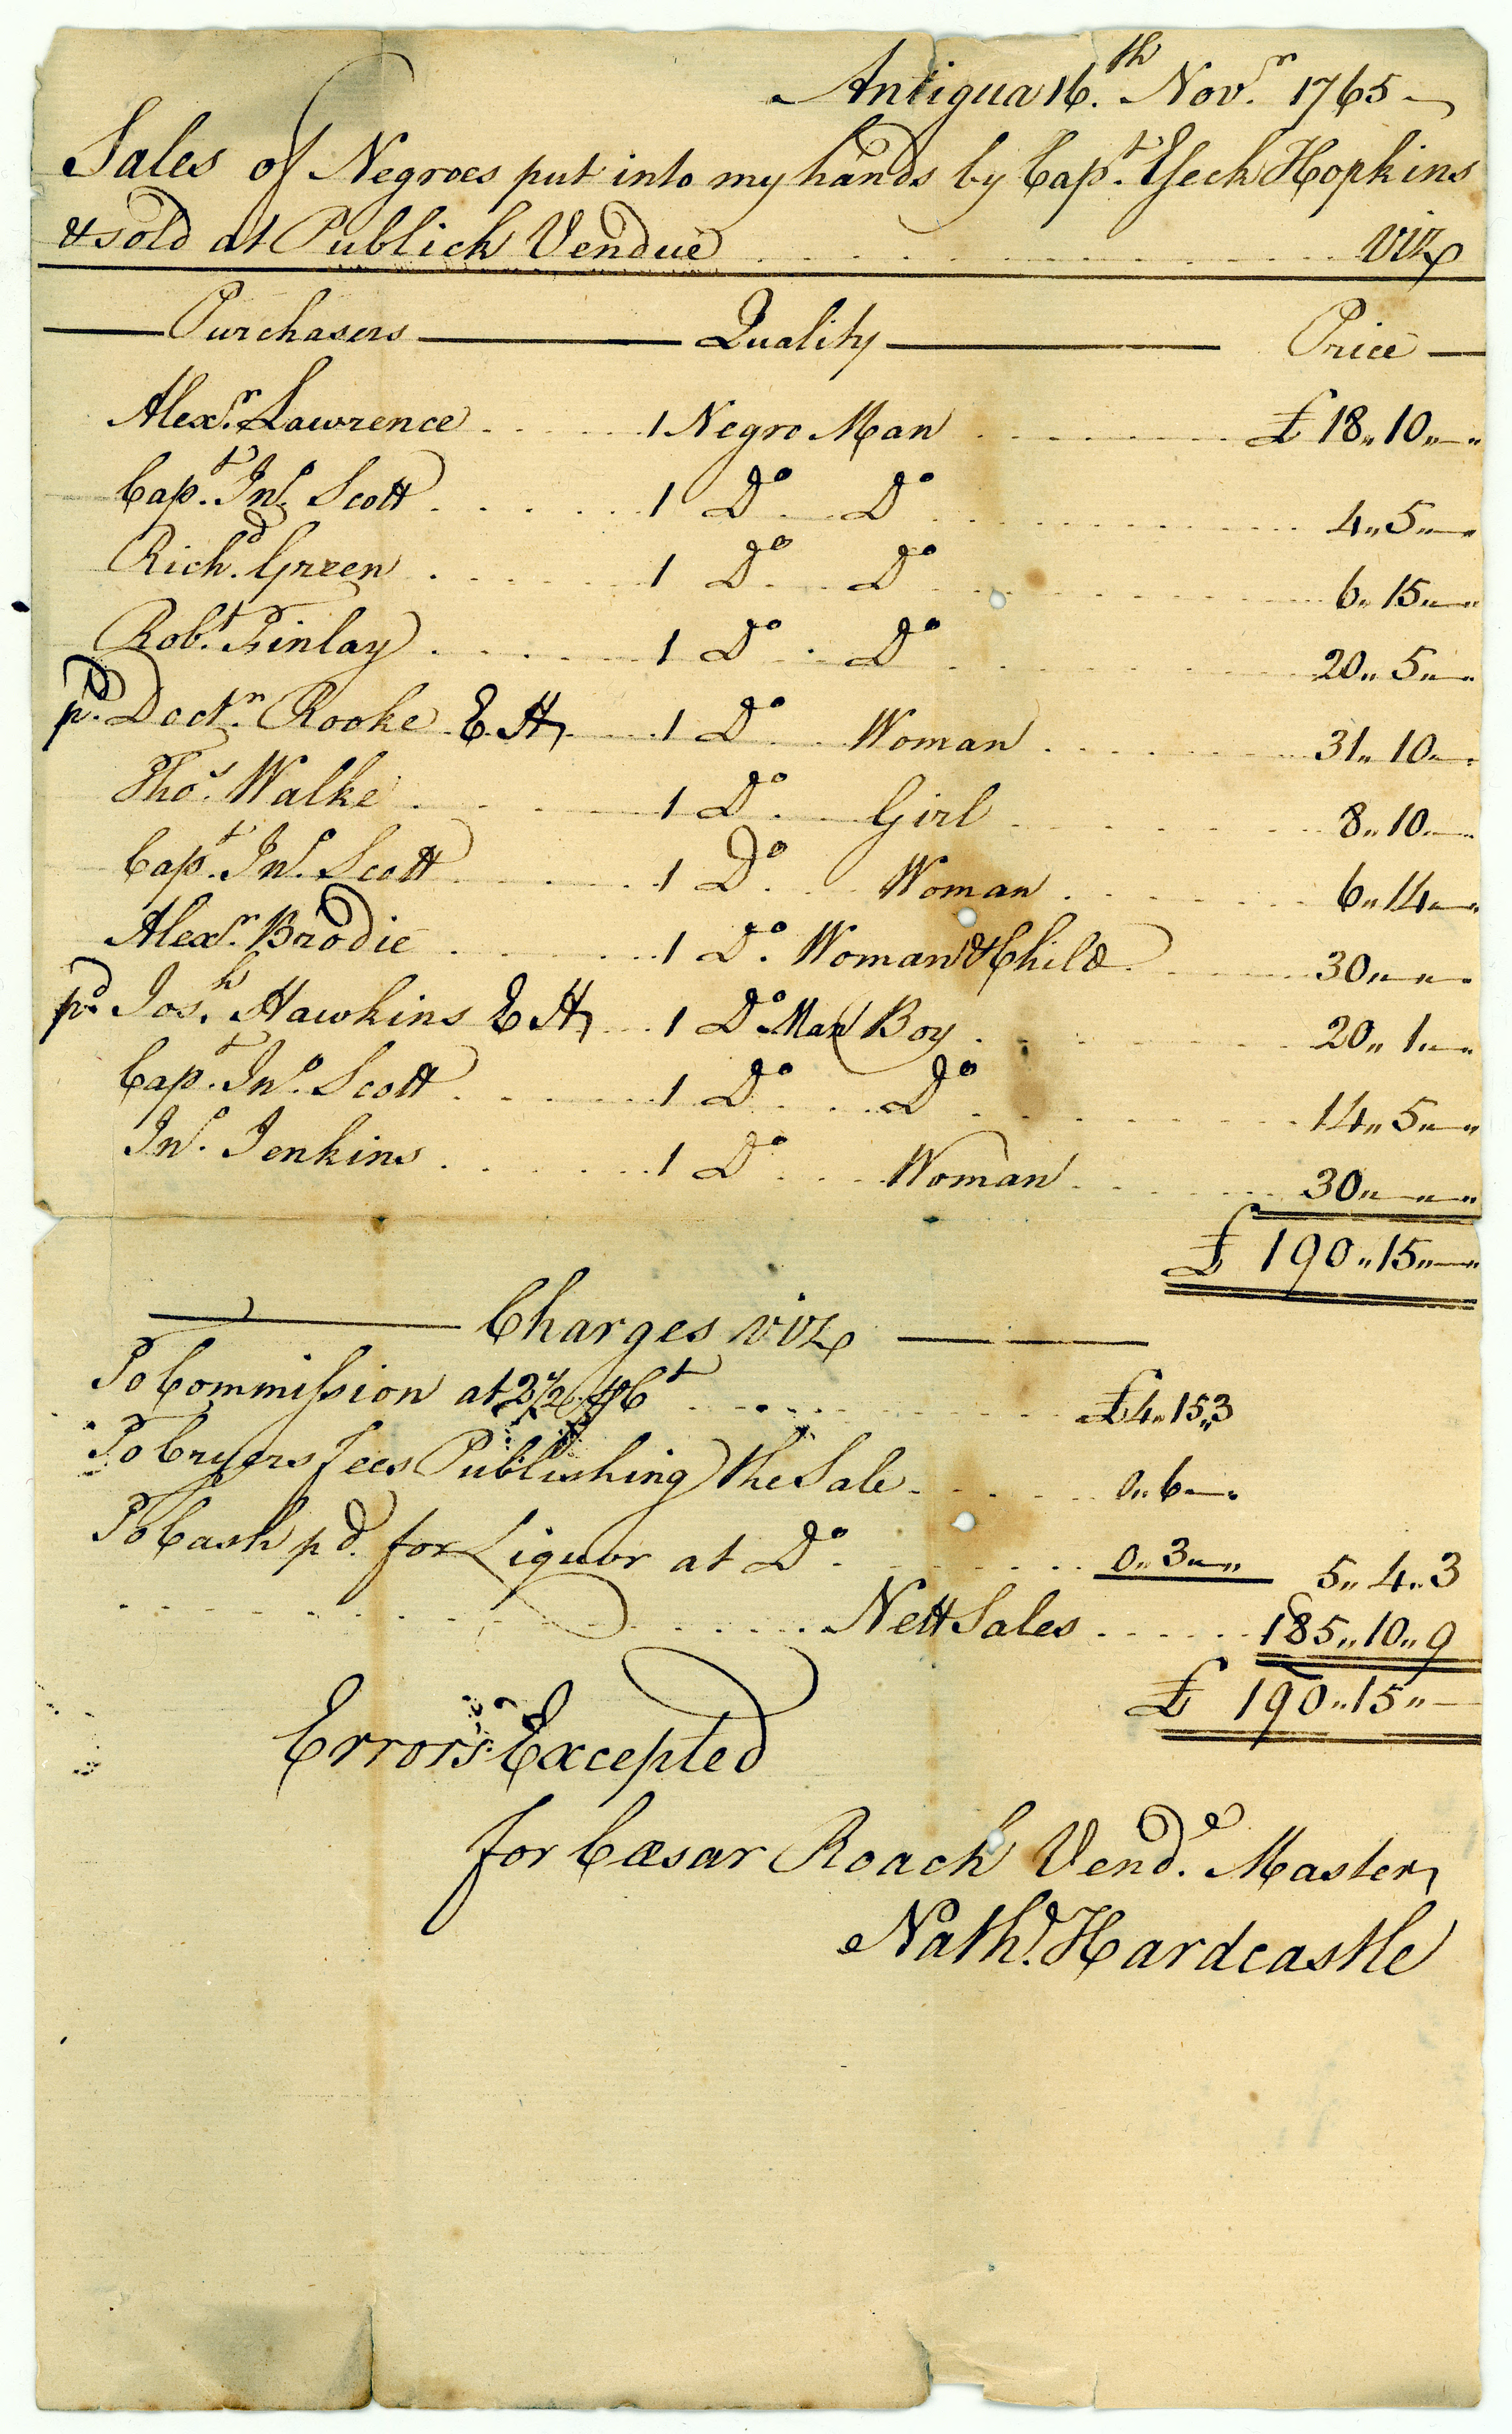 Antigua 16.th Nov.r 1765
Sales of Negroes put into my hands by Cap.t Eseck Hopkins
& sold at Publick Vendue viz
Purchasers Quality Price
Alex.r Lawrence 1 Negro Man £ 18,, 10,, —
Cap.t Jn.o Scott 1 D.o D.o 4,, 5,, —
Rich.d Green 1 D.o D.o 6,, 15,, —
Rob.t Finlay 1 D.o D.o 20,, 5,, —
p.d Doct.r Rooke E H 1 D.o Woman 31,, 10,, —
Tho.s Walke 1 D.o Girl 8,, 10,, —
Cap.t Jn.o Scott 1 D.o Woman 6,, 14,, —
Alex.r Brodie 1 D.o Woman & Child 30,, ,, —
p.d Jos.h Hawkins E H 1 D.o Man Boy 20,, 1,, —
Cap.t Jn.o Scott 1 D.o D.o 14,, 5,, —
Jn.o Jenkins 1 D.o Woman 30,, — ,,
£ 190,, 15,, —
Charges viz
To Commission at 2½ ⅌ C.t £4,, 15,, 3
To Cryers Fees Publishing the Sale 0,, 6 —
To Cash p.d for Liquor at D.o 0,, 3 — 5,, 4,, 3
Nett Sales 185,, 10,, 9
£ 190,, 15,, —
Errors Excepted
for Cæsar Roach Vend.e Master
Nath.l Hardcastle